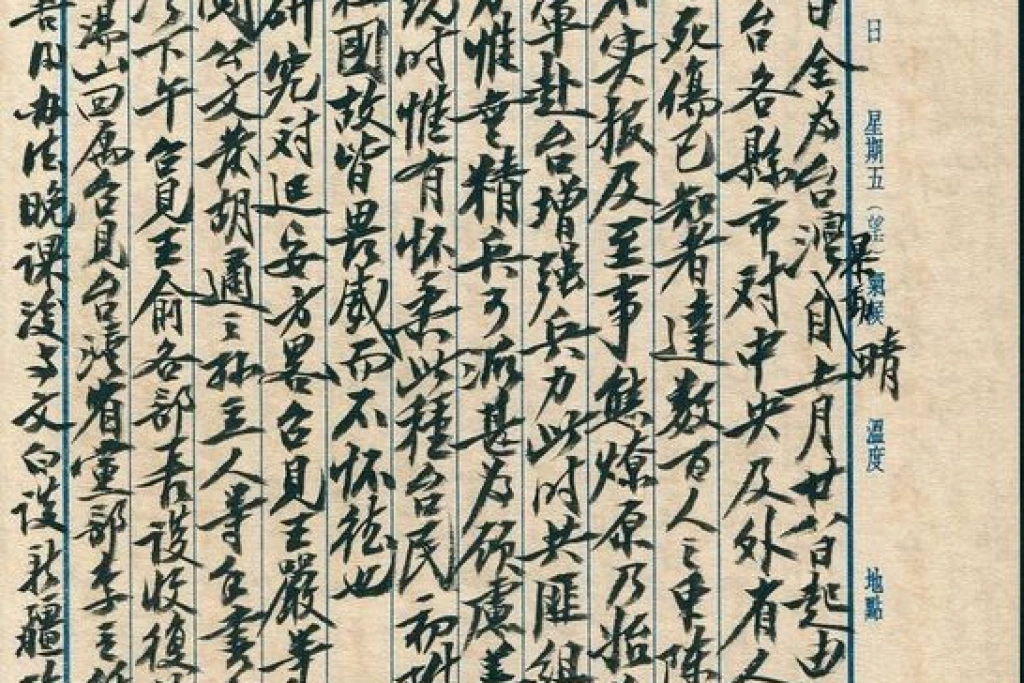 日 星期五（望） 氣候 晴 溫度 地點
日全為台灣自上月廿八日起由
暴動
台各縣市對中央及外省人
死傷已知者達數百人之眾陳
不实报及至事態燎原乃始
軍赴台增强兵力此时共匪組
惟無精兵可派甚为顧慮善
时惟有怀柔此種台民初附
國故皆畏威而不怀德也
研究対延安方畧召見王嚴等
阅公文发胡適之孫立人等各書
下午召見王俞各部長談收復
湯山回寓召見台灣省黨部李主
晚課後与文白談新疆